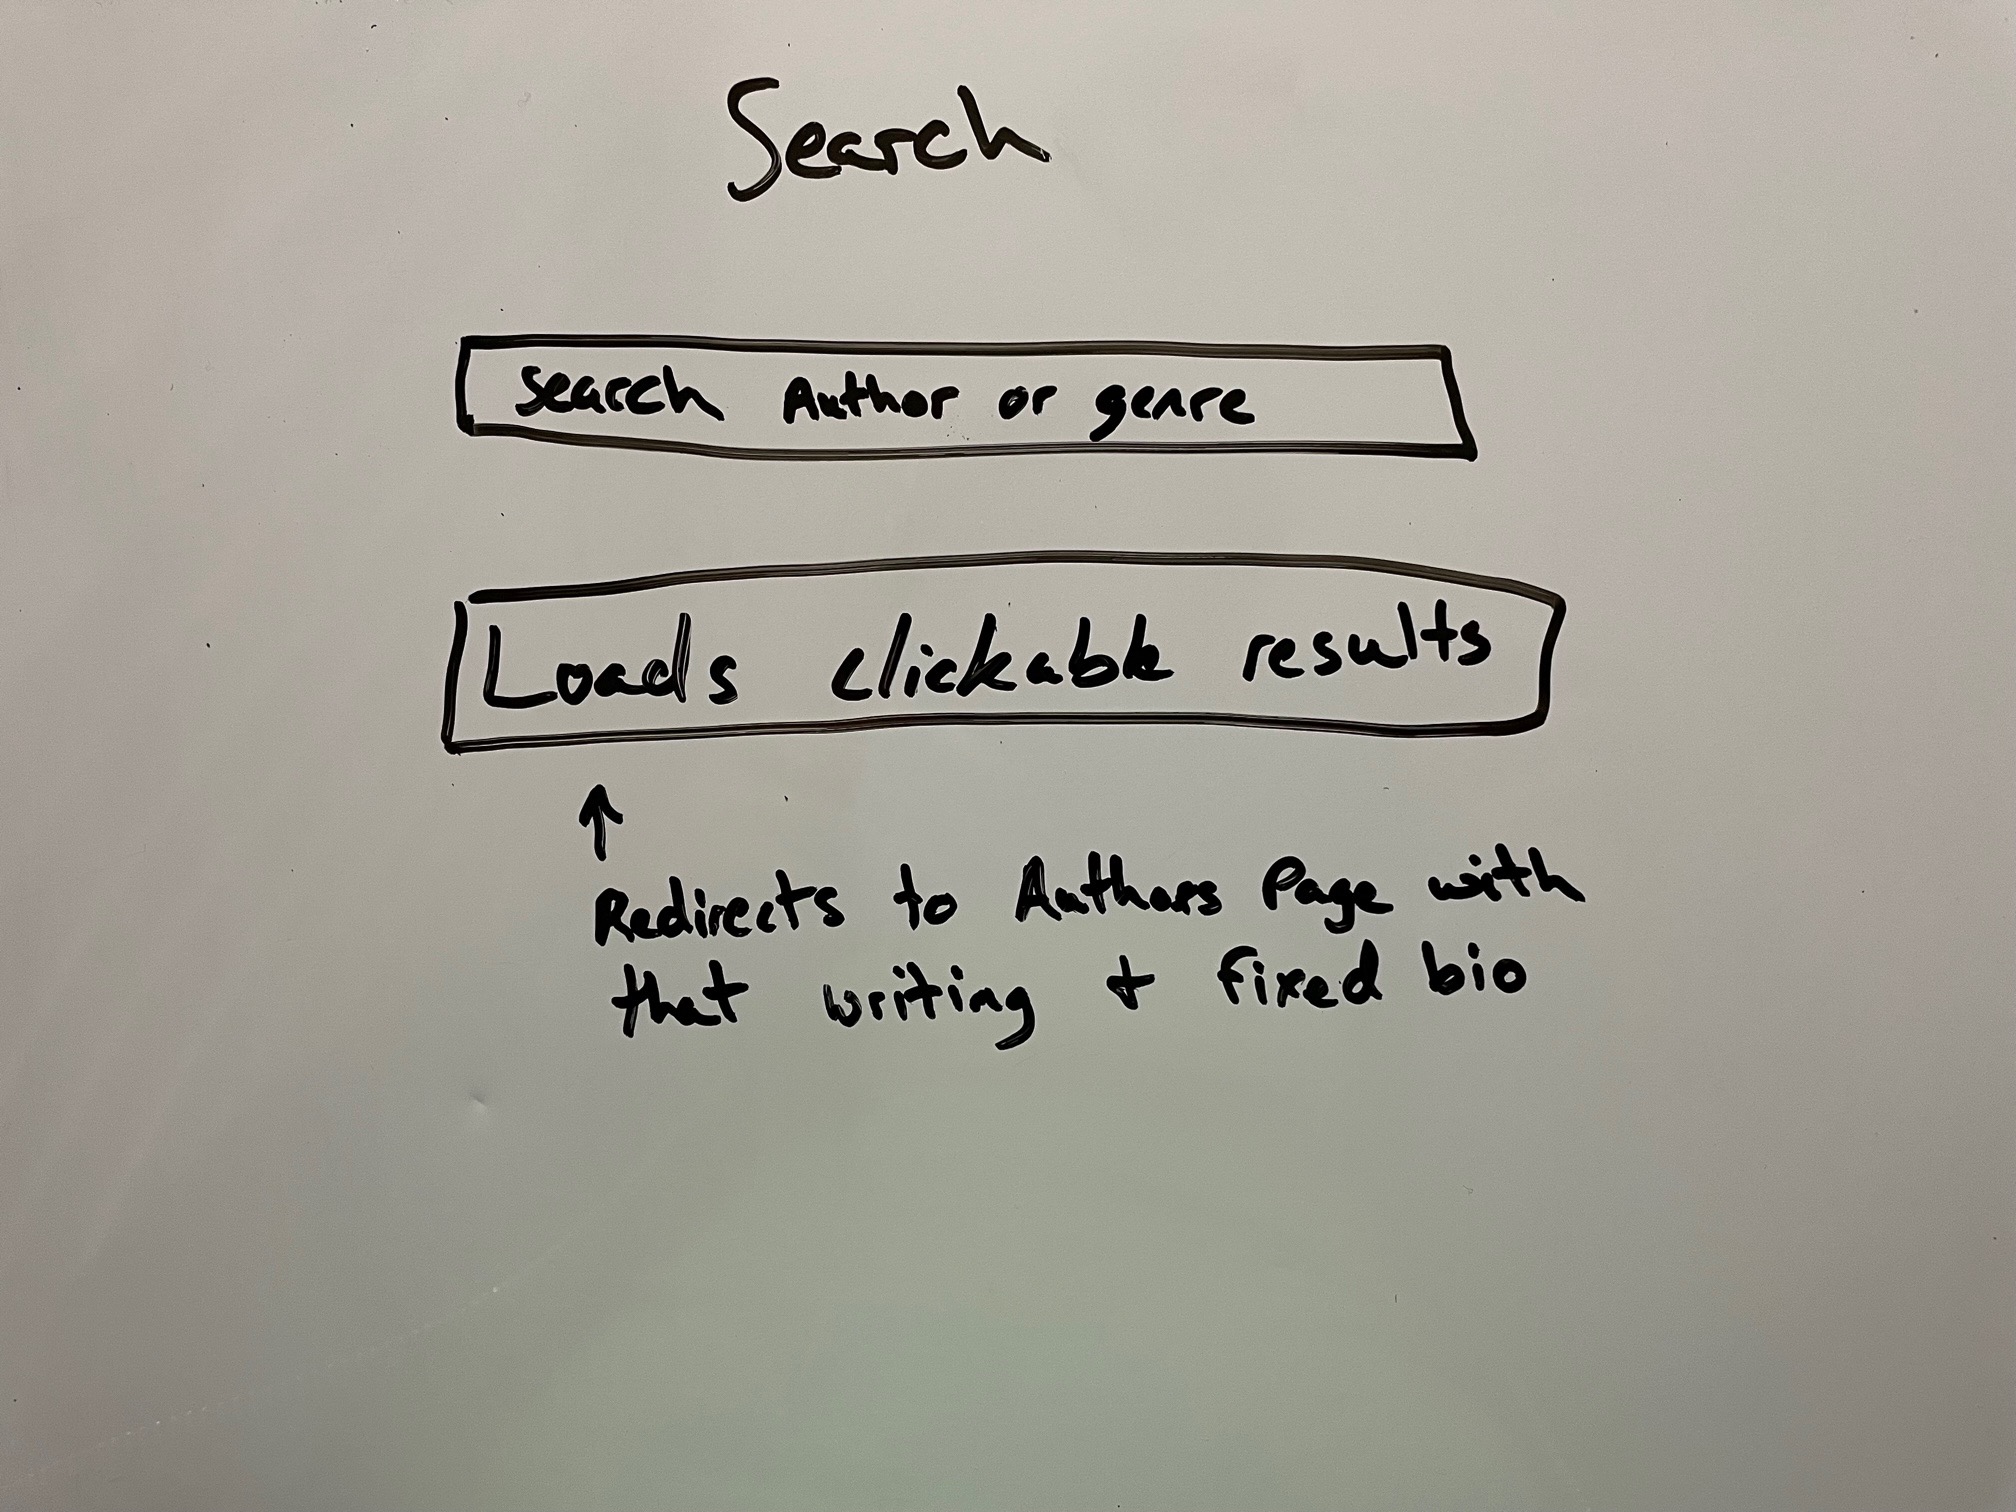 Search
Search Author or genre
Loads clickable results
↑
Redirects to Authors Page with
that writing + fixed bio